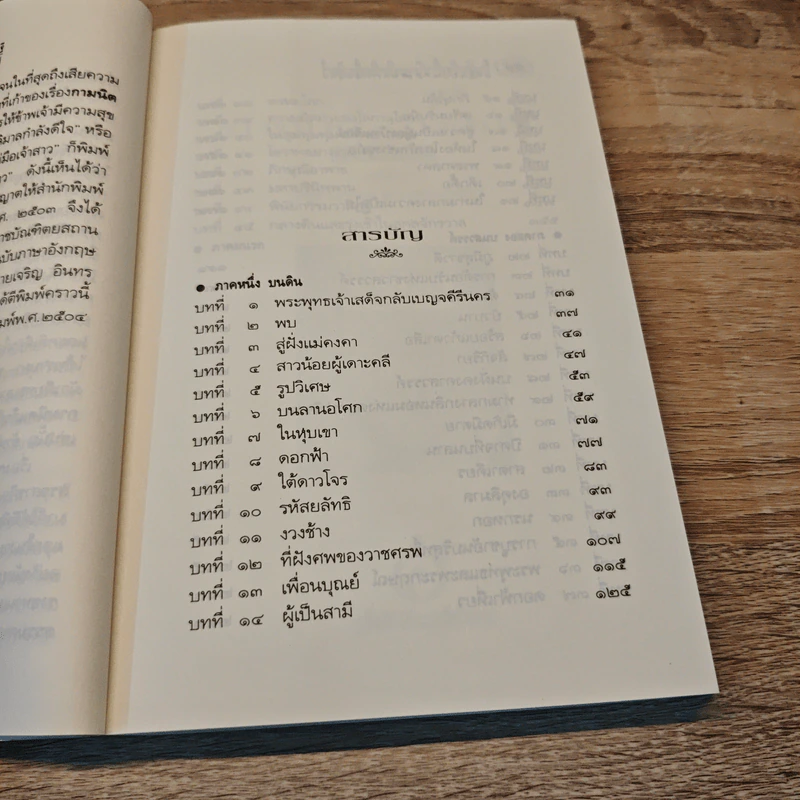 จนในที่สุดถึงเสียความ
ที่เก้าของเรื่องกามนิต
รให้ข้าพเจ้ามีความสุข
วิมาลกำลังดีใจ" หรือ
มือเจ้าสาว" ก็พิมพ์
าว" ดังนี้เห็นได้ว่า
ญาตให้สำนักพิมพ์
ศ. ๒๕๐๓ จึงได้
ราชบัณฑิตยสถาน
ฉบับภาษาอังกฤษ
ายเจริญ อินทร
ได้ตีพิมพ์คราวนี้
มพ์พ.ศ.๒๕๐๔
สารบัญ
● ภาคหนึ่ง บนดิน
บทที่ ๑ พระพุทธเจ้าเสด็จกลับเบญจคีรีนคร ๓๑
บทที่ ๒ พบ ๓๗
บทที่ ๓ สู่ฝั่งแม่คงคา ๔๑
บทที่ ๔ สาวน้อยผู้เดาะคลี ๔๗
บทที่ ๕ รูปวิเศษ ๕๓
บทที่ ๖ บนลานอโศก ๕๙
บทที่ ๗ ในหุบเขา ๗๑
บทที่ ๘ ดอกฟ้า ๗๗
บทที่ ๙ ใต้ดาวโจร ๘๓
บทที่ ๑๐ รหัสยลัทธิ ๙๓
บทที่ ๑๑ งวงช้าง ๙๙
บทที่ ๑๒ ที่ฝังศพของวาชศรพ ๑๐๗
บทที่ ๑๓ เพื่อนบุณย์ ๑๑๕
บทที่ ๑๔ ผู้เป็นสามี ๑๒๕